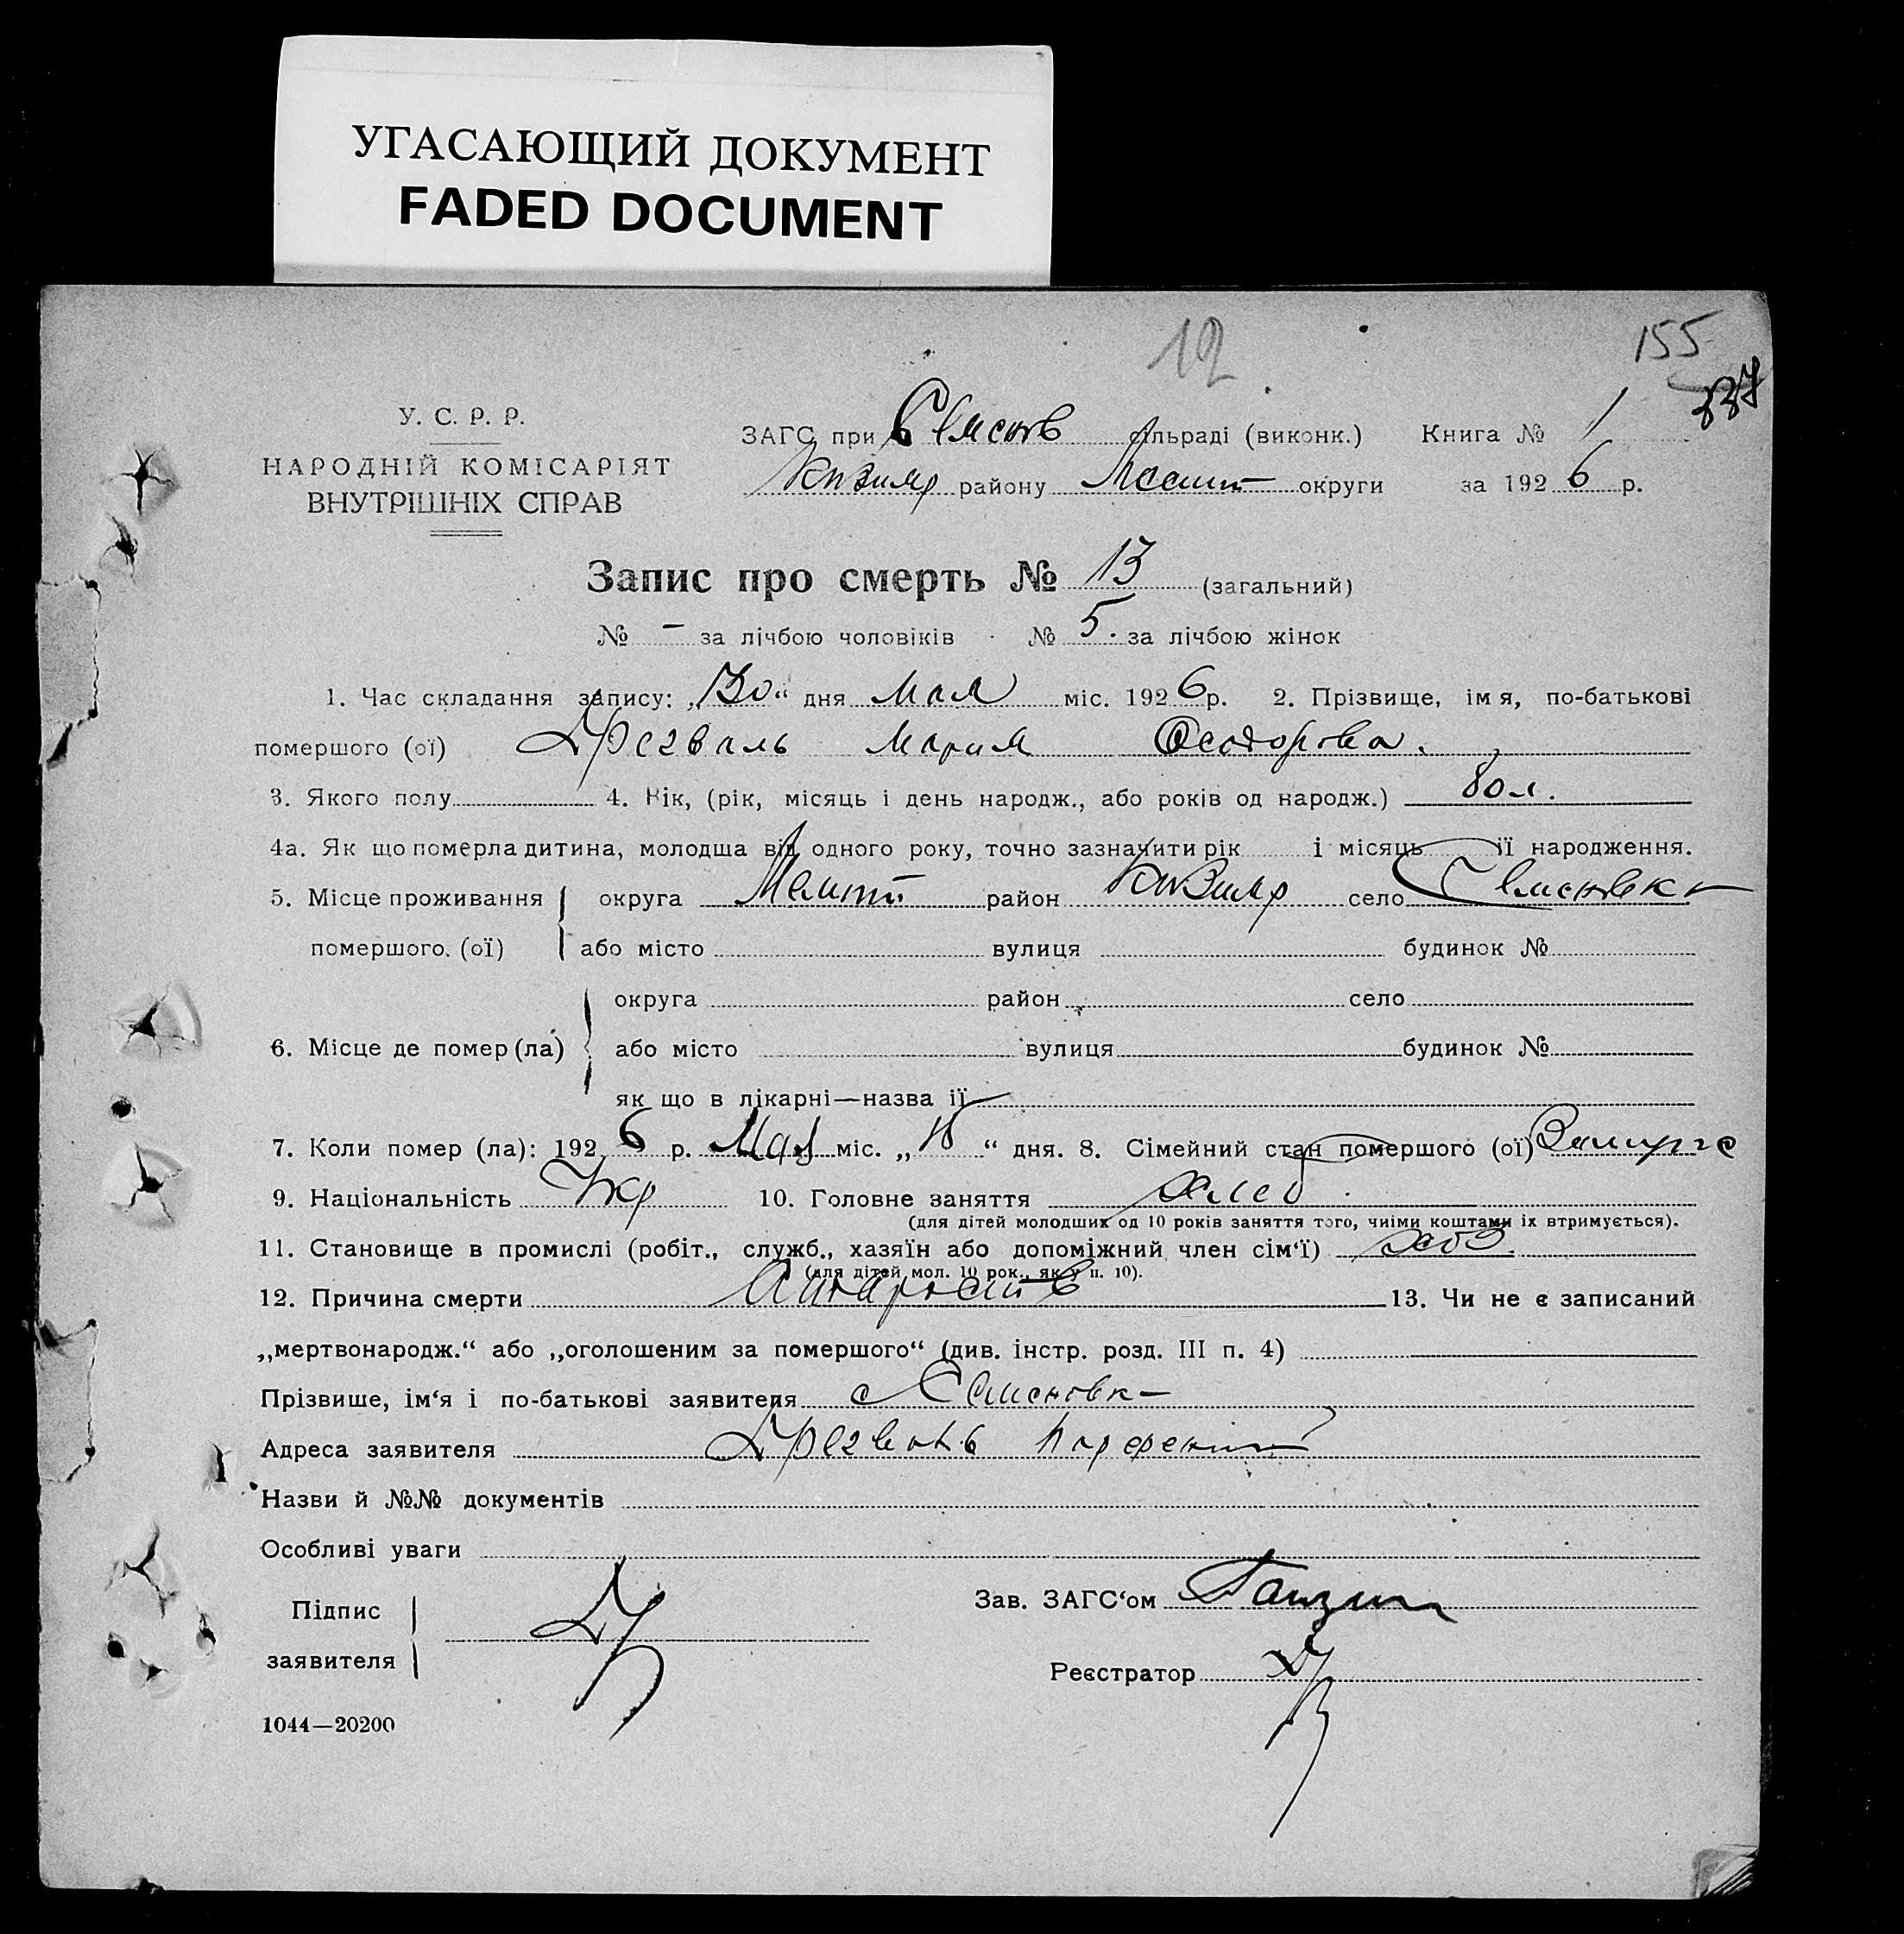 УГАСАЮЩИЙ ДОКУМЕНТ
FADED DOCUMENT
12
155
У. С. Р. Р.
НАРОДНІЙ КОМІСАРІЯТ
ВНУТРІШНІХ СПРАВ
ЗАГС при Семенів сільраді (виконк.) Книга № 1
району округи за 1926 р.
Запис про смерть № 13 (загальний)
№ – за лічбою чоловіків № 5. за лічбою жінок
1. Час складання запису: „30“ дня Мая міс. 1926 р. 2. Прізвище, імя, по-батькові
помершого (ої) Дрегваль Мария Феодорова.
3. Якого полу 4. Вік, (рік, місяць і день народж., або років од народж.) 80 л.
4а. Як що померла дитина, молодша від одного року, точно зазначити рік і місяць її народження.
5. Місце проживання округа район село Семеновка
помершого. (ої) або місто вулиця будинок №
округа район село
6. Місце де помер (ла) або місто вулиця будинок №
як що в лікарні—назва її
7. Коли помер (ла): 1926 р. Мая міс. „ “ дня. 8. Сімейний стан помершого (ої)
9. Національність Укр 10. Головне заняття хлеб.
(для дітей молодших од 10 років заняття того, чиіми коштами іх втримується).
11. Становище в промислі (робіт., служб., хазяїн або допоміжний член сім‘ї)
(для дітей мол. 10 рок., як у п. 10).
12. Причина смерти 13. Чи не є записаний
„мертвонародж.“ або „оголошеним за помершого“ (див. інстр. розд. III п. 4)
Прізвише, ім‘я і по-батькові заявителя с Семеновка
Адреса заявителя Дрегваль Парфений
Назви й №№ документів
Особливі уваги
Підпис
заявителя
Зав. ЗАГС‘ом
Реєстратор
1044—20200